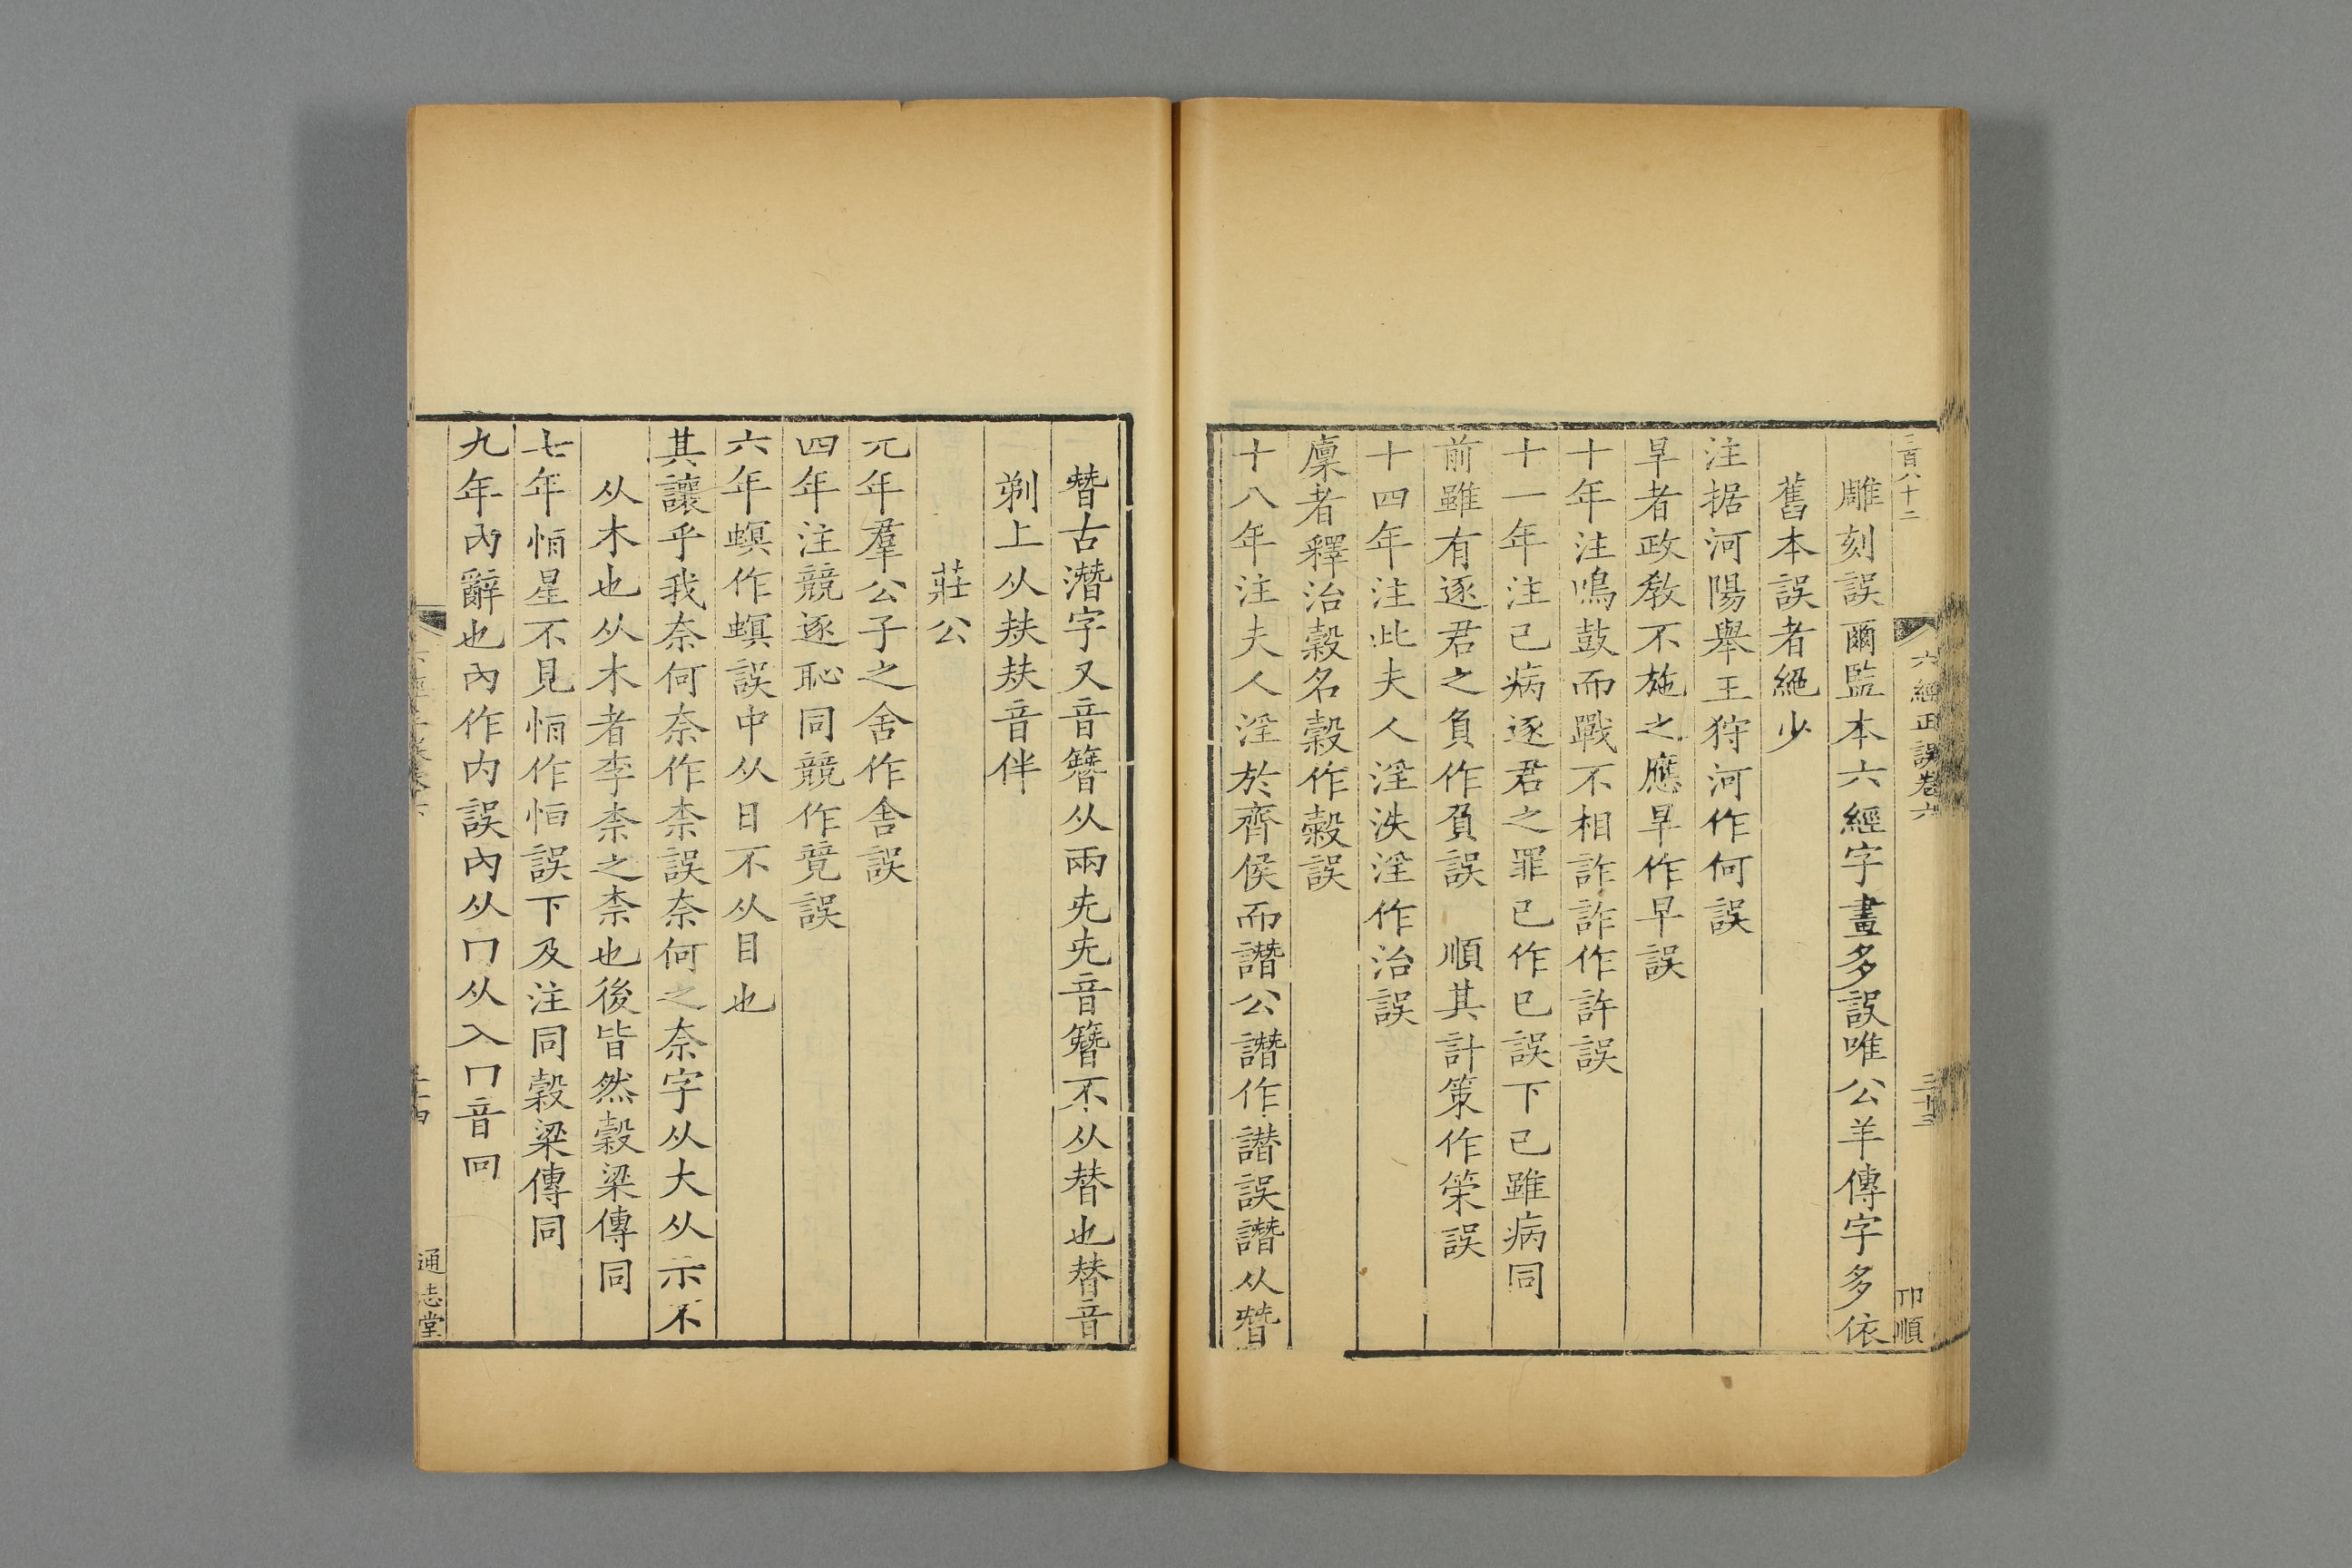 三百八十二
六經正誤卷六
三十三
卬順
雕刻誤爾監本六經字畫多誤唯公羊傳字多依
舊本誤者絕少
注据河陽舉王狩河作何誤
旱者政教不施之應旱作早誤
十年注鳴鼓而戰不相詐詐作許誤
十一年注己病逐君之罪己作巳誤下己雖病同
前雖有逐君之負作負誤 順其計策作筞誤
十四年注此夫人淫泆淫作治誤
廩者釋治榖名榖作穀誤
十八年注夫人淫於齊侯而譖公譖作譛誤譖从朁
朁古潛字又音簪从兩兂兂音簪不从替也替音
剃上从㚘㚘音伴
莊公
元年羣公子之舍作舎誤
四年注競逐恥同競作竟誤
六年螟作螟誤中从日不从目也
其讓乎我奈何奈作柰誤奈何之奈字从大从示不
从木也从木者李柰之柰也後皆然穀梁傳同
七年恒星不見恒作恒誤下及注同穀梁傳同
九年內辭也內作内誤內从冂从入冂音回
通志堂